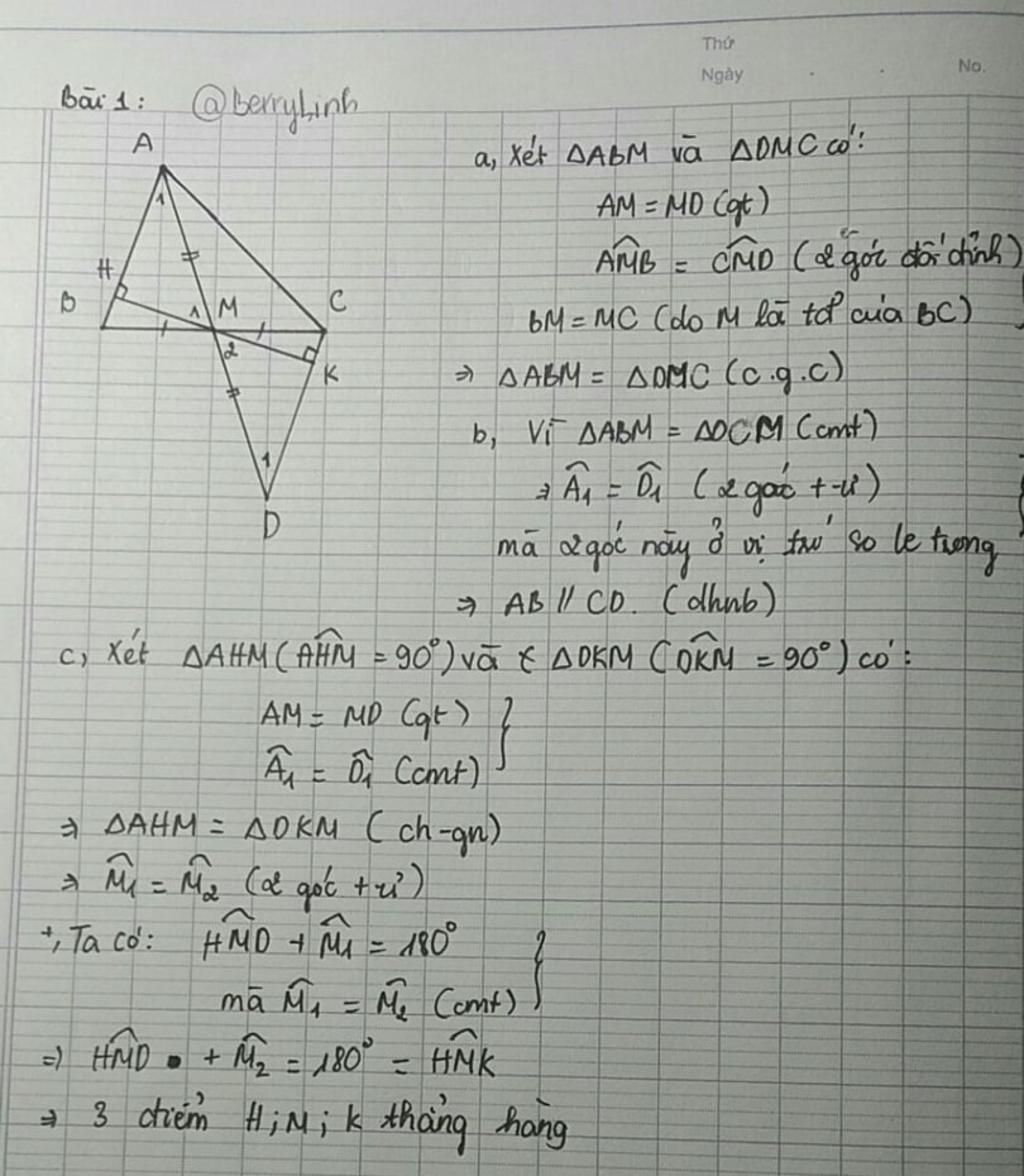 Thứ
Ngày . . No.
Bài 1: @BerryLinh
A
1
H
B 1 M C
2
K
1
D
a, Xét ΔABM và ΔDMC có:
AM = MD (gt)
\widehat{AMB} = \widehat{CMD} (2 góc đối đỉnh)
BM = MC (do M là tđ của BC)
⇒ ΔABM = ΔDMC (c.g.c)
b, Vì ΔABM = ΔDCM (cmt)
⇒ \widehat{A_1} = \widehat{D_1} (2 góc t-ư)
mà 2 góc này ở vị trí so le trong
⇒ AB // CD. (dhnb)
c, Xét ΔAHM (\widehat{AHM} = 90°) và t ΔDKM (\widehat{DKM} = 90°) có:
AM = MD (gt)
\widehat{A_1} = \widehat{D_1} (cmt)
⇒ ΔAHM = ΔDKM (ch-gn)
⇒ \widehat{M_1} = \widehat{M_2} (2 góc t-ư)
+, Ta có: \widehat{HMD} + \widehat{M_1} = 180°
mà \widehat{M_1} = \widehat{M_2} (cmt)
⇒ \widehat{HMD} + \widehat{M_2} = 180° = \widehat{HMK}
⇒ 3 điểm H; M; K thẳng hàng